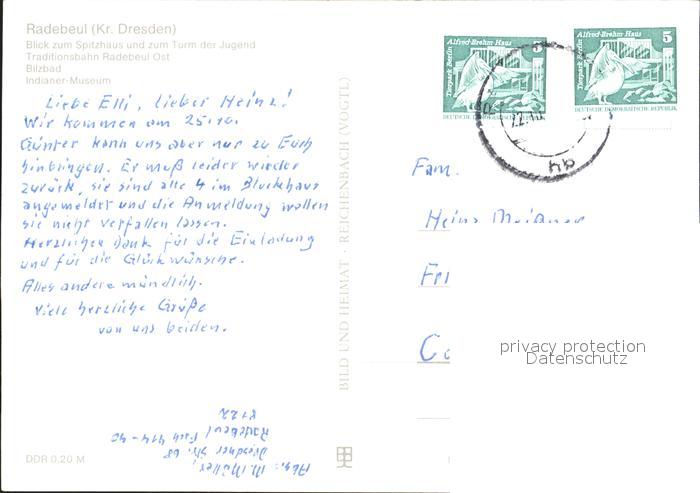 Radebeul (Kr. Dresden)
Blick zum Spitzhaus und zum Turm der Jugend
Traditionsbahn Radebeul Ost
Bilzbad
Indianer-Museum
Liebe Elli, lieber Heinz!
Wir kommen am 25.10.
Günter kann uns aber nur zu Euch
hinbringen. Er muß leider wieder
zurück, sie sind alle 4 im Blockhaus
angemeldet und die Anmeldung wollen
sie nicht verfallen lassen.
Herzlichen Dank für die Einladung
und für die Glückwünsche.
Alles andere mündlich.
Viele herzliche Grüße
von uns beiden.
Abs.: M. Müller,
Dresdner Str. 68
Radebeul
8122
DDR 0,20 M
BILD UND HEIMAT · REICHENBACH (VOGTL)
Alfred-Brehm-Haus
Tierpark Berlin
5
DEUTSCHE DEMOKRATISCHE REPUBLIK
Alfred-Brehm-Haus
Tierpark Berlin
5
DEUTSCHE DEMOKRATISCHE REPUBLIK
Fam.
Heinz
privacy protection
Datenschutz